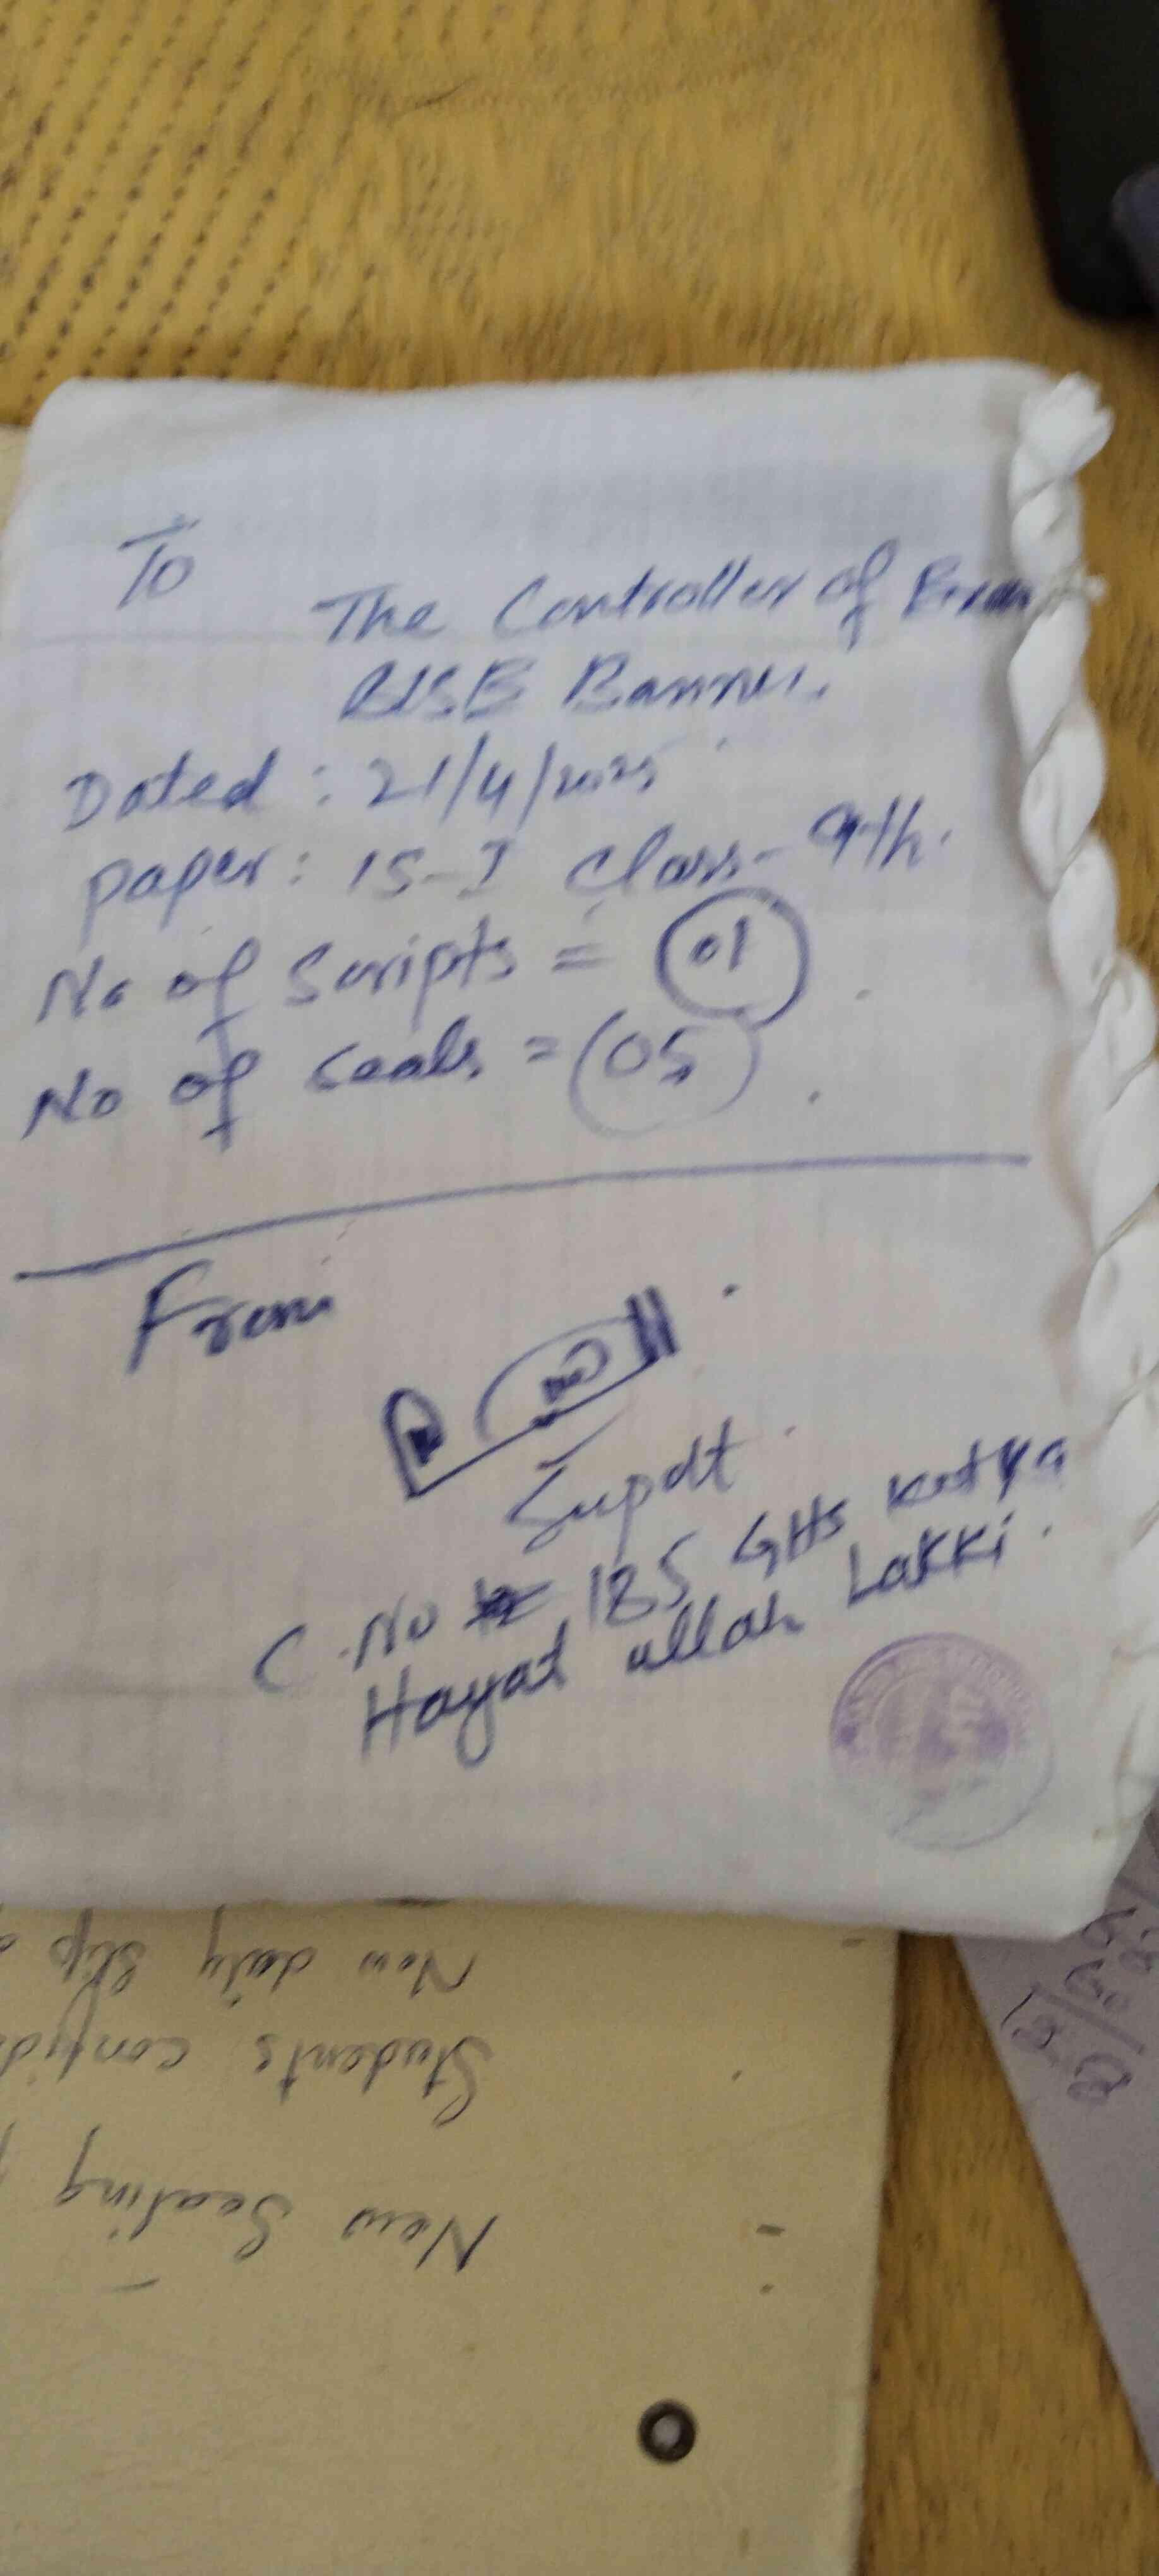 To
The Controller of Exam
BISE Bannu.
Dated : 21/4/2025
paper : IS-I Class- 9th.
No of Scripts = 01
No of seals = 05
From
Supdt
C. No 185 GHS Kotka
Hayat ullah Lakki.
New Seating
Students confid
New duty slip